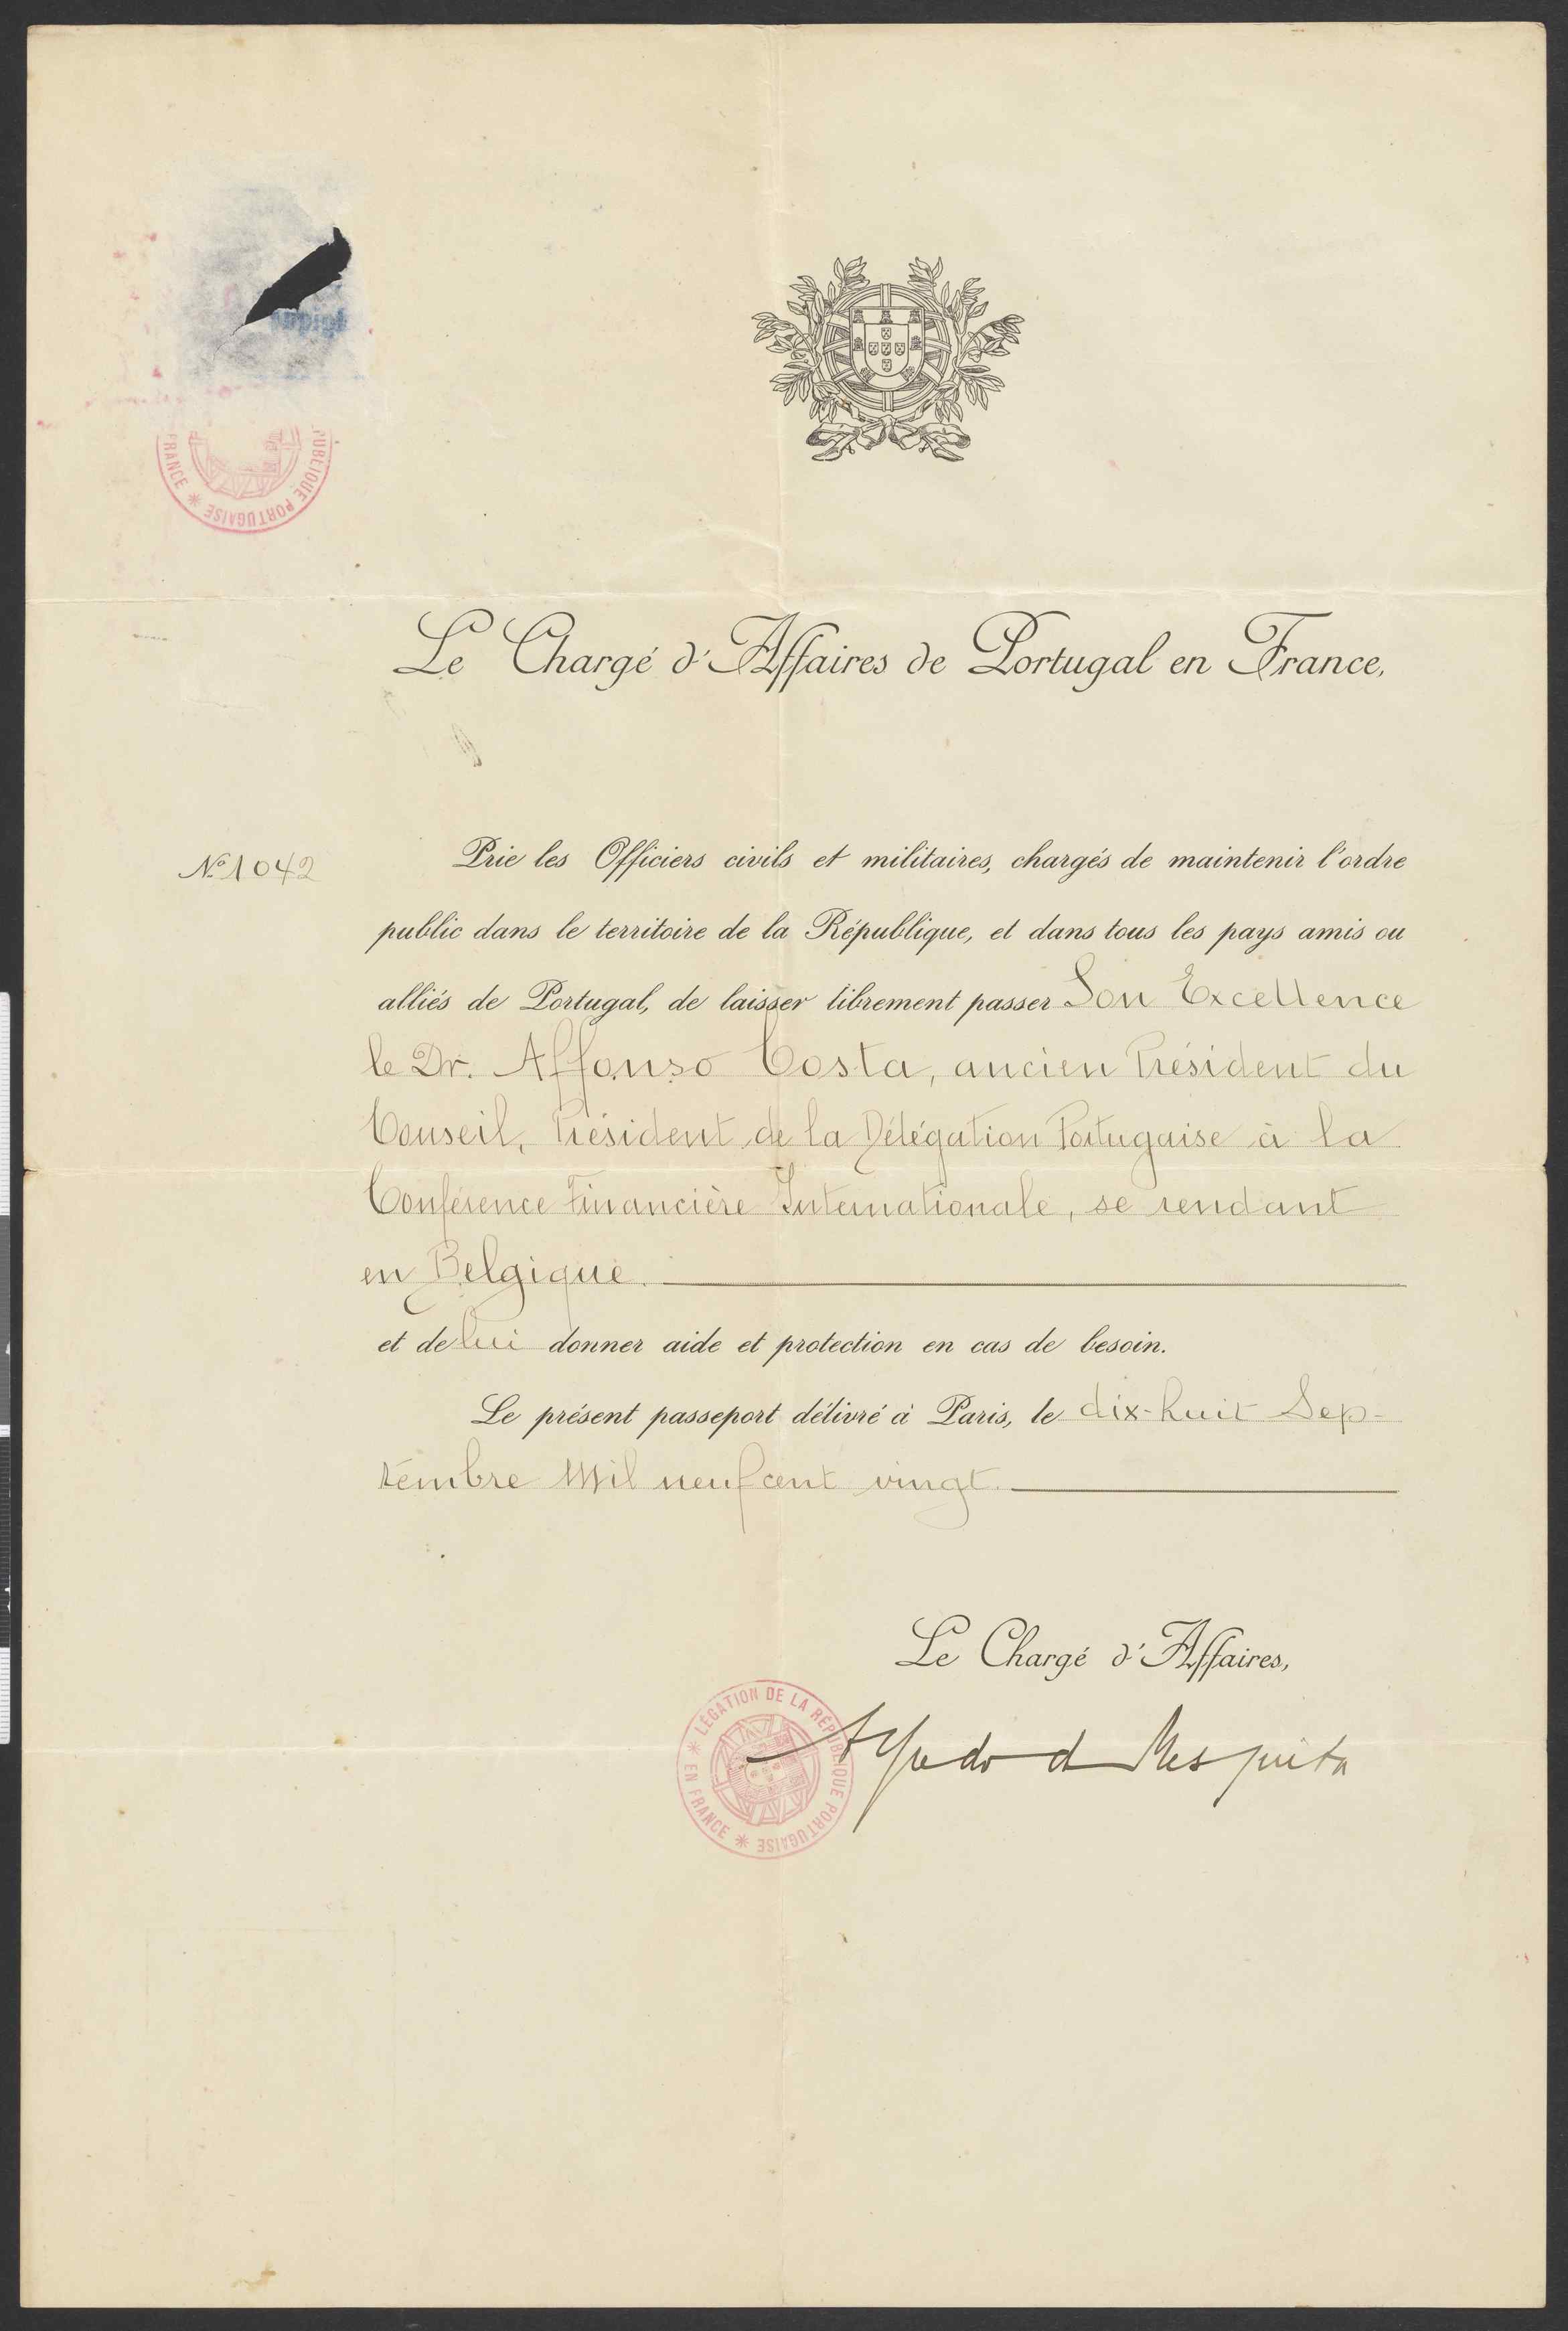 PUBLIQUE PORTUGAISE * FRANCE
Le Chargé d'Affaires de Portugal en France,
Nº 1042
Prie les Officiers civils et militaires, chargés de maintenir l'ordre
public dans le territoire de la République, et dans tous les pays amis ou
alliés de Portugal, de laisser librement passer Son Excellence
le Dr. Affonso Costa, ancien Président du
Conseil, Président de la Délégation Portugaise à la
Conférence Financière Internationale, se rendant
en Belgique.
et de lui donner aide et protection en cas de besoin.
Le présent passeport délivré à Paris, le dix-huit Sep-
tembre Mil neuf cent vingt.
Le Chargé d'Affaires,
Alfredo d Mesquita
* LÉGATION DE LA RÉPUBLIQUE PORTUGAISE * EN FRANCE